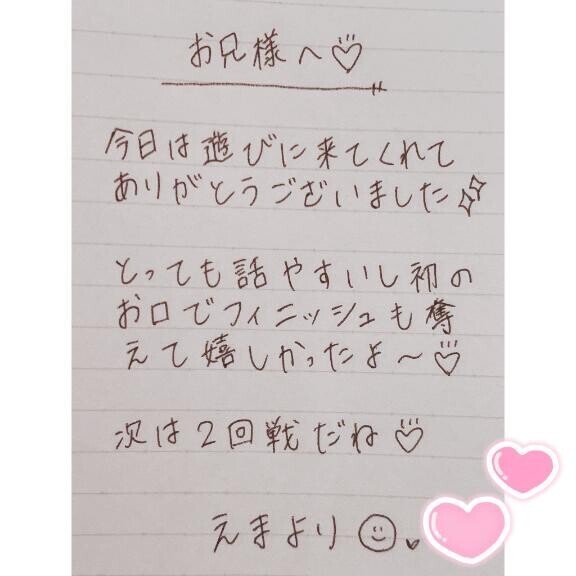 お兄様へ♡
今日は遊びに来てくれて
ありがとうございました
とっても話やすいし初の
お口でフィニッシュも奪
えて嬉しかったよ〜♡
次は2回戦だね♡
えまより